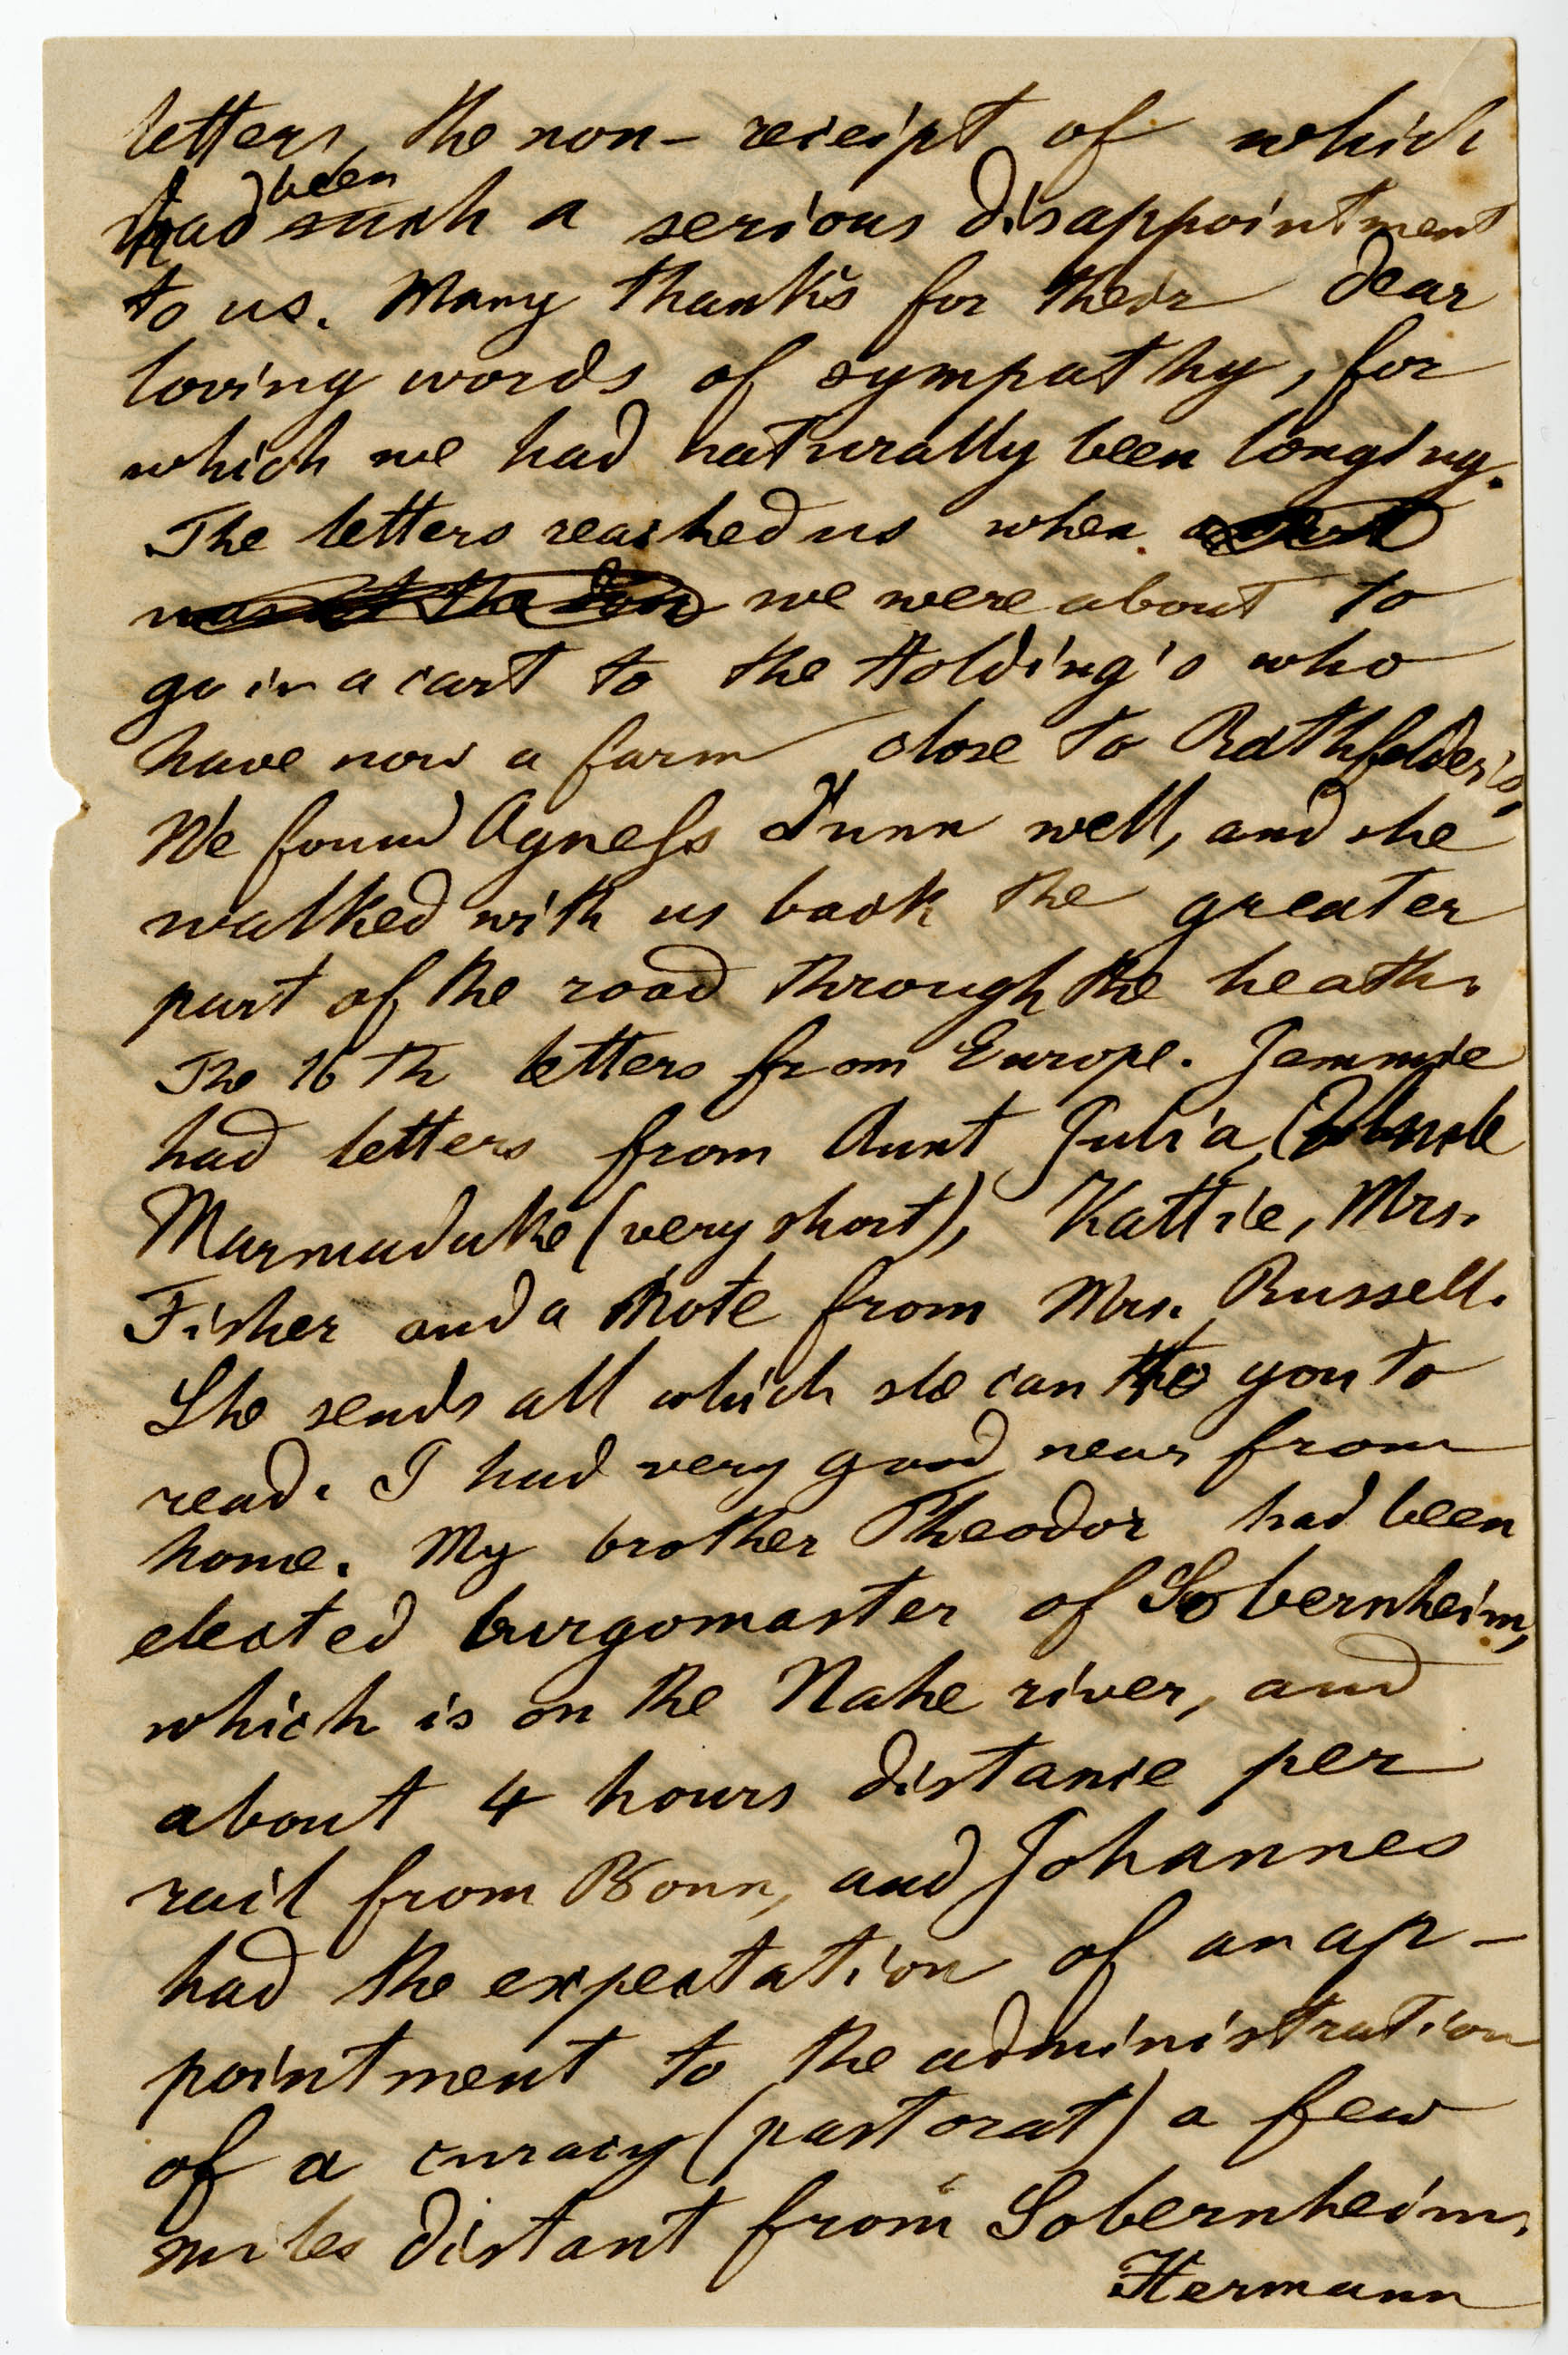 letters, the non- receipt of which
had been such a serious disappointment
to us. Many thanks for their dear
loving words of sympathy, for
which we had naturally been longing.
The letters reached us when a cart
was at the door we were about to
go in a cart to the Holding's who
have now a farm close to Rathfelder's,
We found Agness Dunn well, and she
walked with us back the greater
part of the road through the heath.
The 16th letters from Europe. Jemmie
had letters from Aunt Julia,
Marmaduke (very short), Kattie, Mrs.
Fisher and a note from Mrs. Russell.
She sends all which she can to you to
read. I had very good news from
home. My brother Theodor had been
elected burgomaster of Sobernheim,
which is on the Nahe river, and
about 4 hours distance per
rail from Bonn, and Johannes
had the expectation of an ap-
pointment to the administration
of a curacy (pastorat) a few
miles distant from Sobernheim.
Hermann